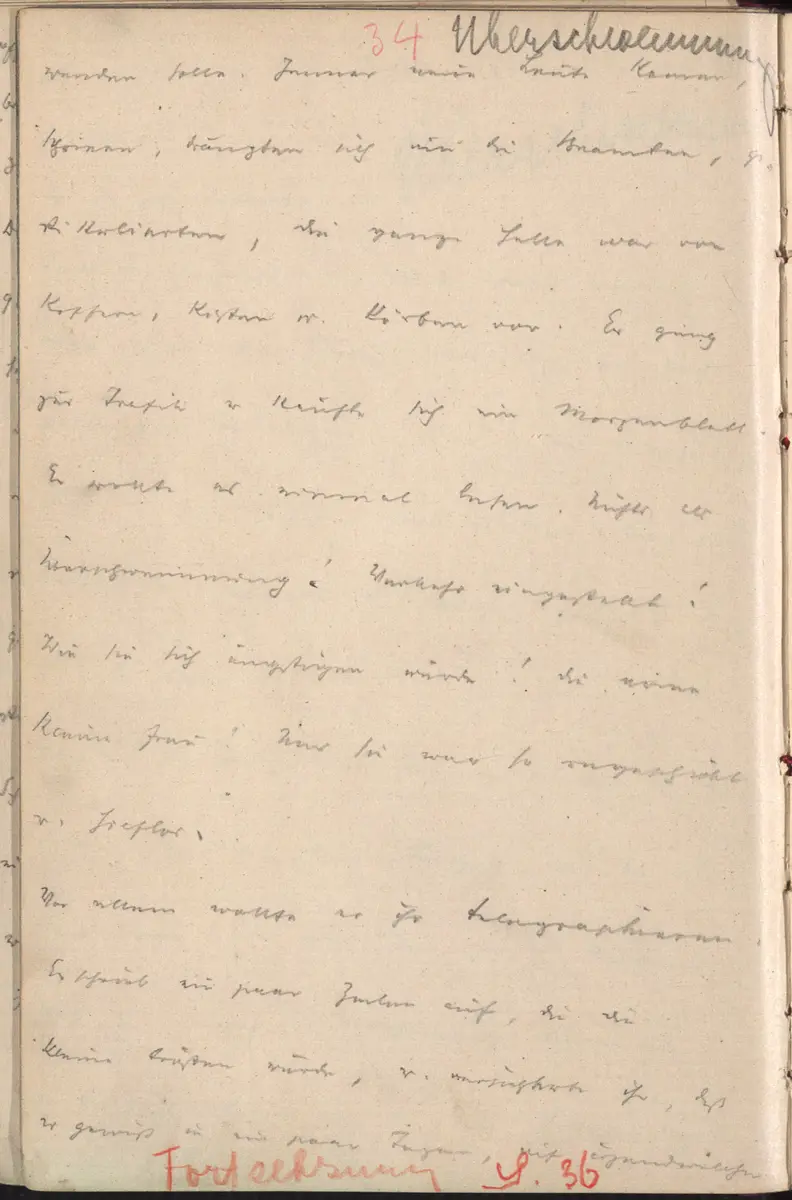 34 Überschwemmung
werden solle. Immer neue Leute kamen,
schrieen, drängten sich um die Beamten, ge-
stikulierten, die ganze Halle war von
Koffern, Kisten u. Körben voll. Er ging
zur Trafik u kaufte sich ein Morgenblatt.
Er wollte es einmal lesen. Nichts als
Überschwemmung! Verkehr eingestellt!
Wie sie sich ängstigen würde! die arme
kleine Frau! Nun sie war so ungeschickt
u. hilflos.
Vor allem wollte er ihr telegraphieren.
Er schrieb ein paar Zeilen auf, die die
Kleine trösten würde, u. versicherte ihr, daß
er gewiß in ein paar Tagen, mit irgendwelcher
Fortsetzung S. 36